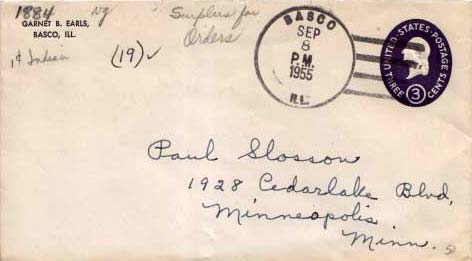 1884 NG
Surplus for
Orders
GARNET B. EARLS,
BASCO, ILL.
1¢ Indian
(19) ✓
BASCO
SEP
8
P.M.
1955
ILL.
UNITED · STATES · POSTAGE
THREE 3 CENTS
Paul Slosson
1928 Cedarlake Blvd,
Minneapolis
Minn.